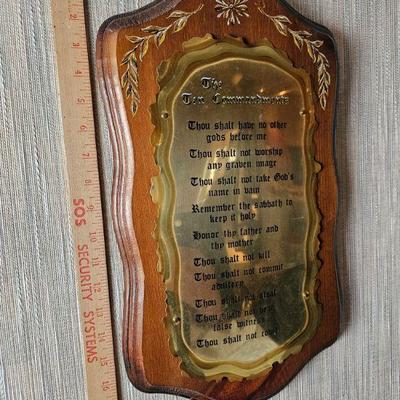 The
Ten Commandments
Thou shalt have no other
gods before me
Thou shalt not worship
any graven image
Thou shalt not take God's
name in vain
Remember the sabbath to
keep it holy
Honor thy father and
thy mother
Thou shalt not kill
Thou shalt not commit
adultery
Thou shalt not steal
Thou shalt not bear
false witness
Thou shalt not covet
SOS SECURITY SYSTEMS